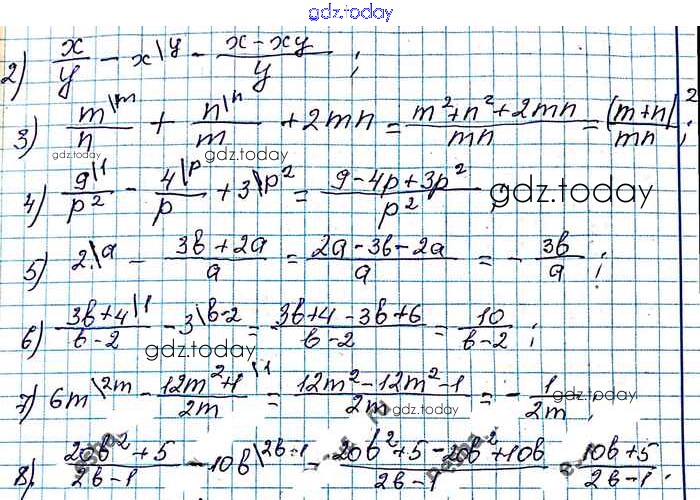 gdz.today
2) x/y - x\y - (x-xy)/y ;
3) m\m/n + n\n/m + 2mn = (m²+n²+2mn)/mn = (m+n)²/mn ;
gdz.today gdz.today
4) 9\1/p² - 4\p/p + 3\p² = (9-4p+3p²)/p² gdz.today
5) 2\a - (3b+2a)/a = (2a-3b-2a)/a = -3b/a ;
6) (3b+4)\1/(b-2) - 3\b-2 = (3b+4-3b+6)/(b-2) = 10/(b-2) ;
gdz.today
7) 6m\2m - (12m²+1)\1/2m = (12m²-12m²-1)/2m = -1/2m ;
gdz.today
8) (20b²+5)/(2b-1) - 10b\2b-1 = (20b²+5-20b²+10b)/(2b-1) = (10b+5)/(2b-1) ;